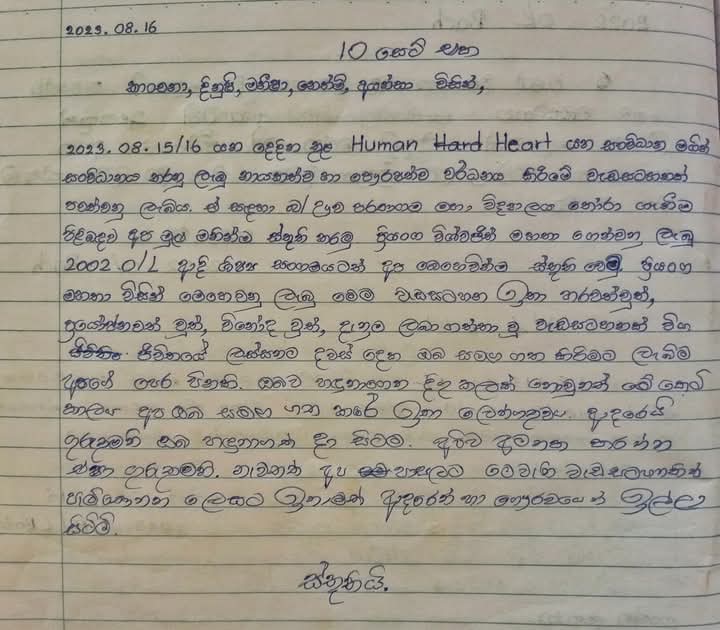 2023.08.16
10 සෙට් එක
කාංචනා, දිනුෂි, මනීෂා, නෙත්මි, අයන්තා විසින්,
2023.08.15/16 යන දෙදින තුළ Human Hard Heart යන සංවිධාන මගින්
සංවිධානය කරනු ලැබූ නායකත්ව හා පෞරෂත්ව වර්ධනය කිරීමේ වැඩසටහනක්
පවත්වනු ලැබීය. ඒ සඳහා බ/උඩුව පරණගම මහා විද්‍යාලය තෝරා ගැනීම
පිළිබඳව අප මුල මනින්ම ස්තූති කරමු ප්‍රියංග විශ්වජිත් මහතා ගෙන්වනු ලැබූ
2002 O/L ආදි ශිෂ්‍ය සංගමයටත් අප බෙහෙවින්ම ස්තූති වෙමු ප්‍රියංග
මහතා විසින් මෙහෙවනු ලැබූ මෙම වැඩසටහන ඉතා හරවත්වුත්,
ප්‍රයෝජනවත් වුත්, විනෝද වුත්, දැනුම ලබා ගත්තා වූ වැඩසටහනක් විය
ජීවිතයේ ලස්සනට දවස් දෙක ඔබ සමඟ ගත කිරීමට ලැබීම
අපගේ පෙර පිනකි. ඔබව හඳුනාගෙන දිගු කලක් නොවුනත් මේ කෙටි
කාලය අප ඔබ සමඟ ගත කරේ ඉතා ලෙන්ගතුවය. ආදරෙයි
ගුරුතුමනි ඔබ හඳුනාගත් දා සිටම. අපිව අමතක කරන්න
එපා ගුරුතුමනි. නැවතත් අප පාසලට මෙවැනි වැඩසටහනකින්
පැමිණෙන ලෙසට ඉතාමත් ආදරෙන් හා ගෞරවයෙන් ඉල්ලා
සිටිමි.
ස්තූතියි.